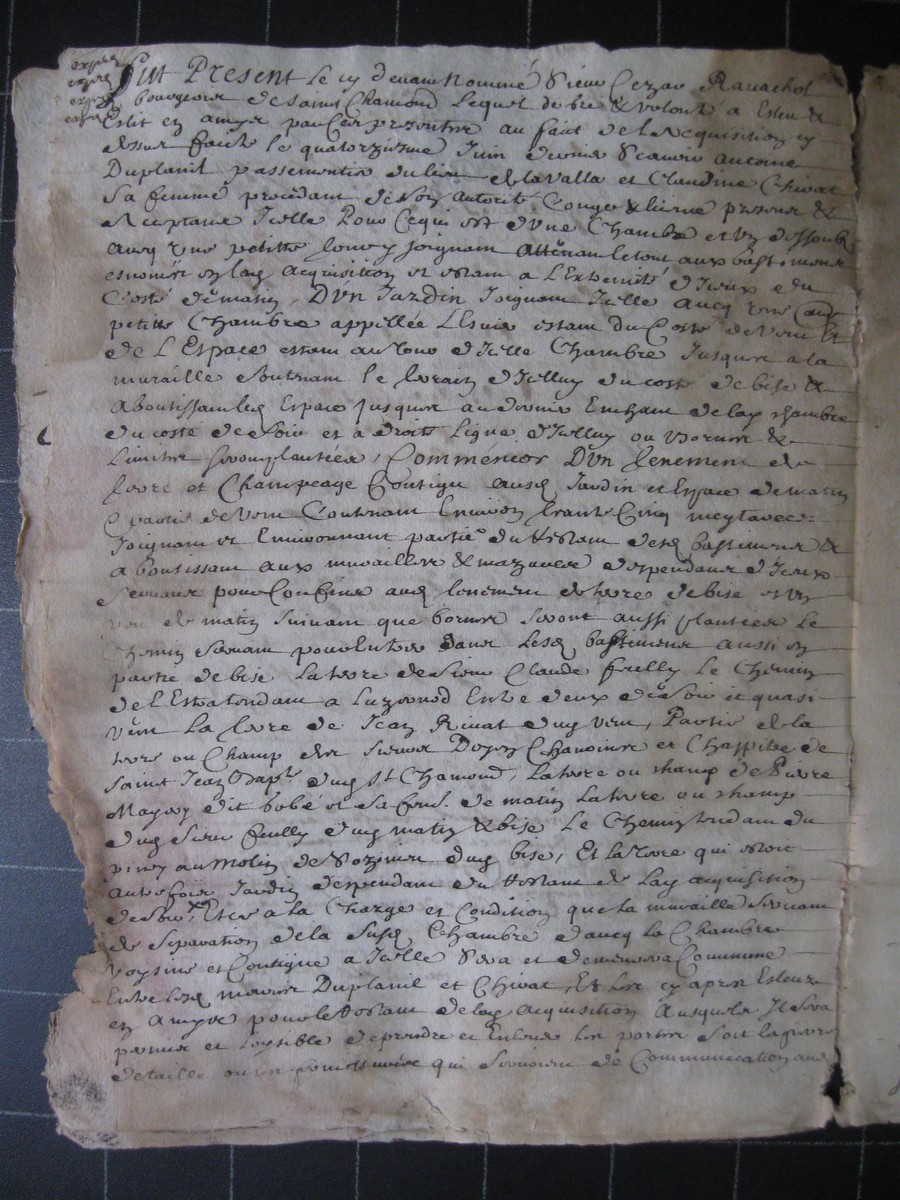 expee
expee
Fut Present le cy devant Nommé Sieur Cezar Ravachol
bourgeois de Saint Chamond Lequel de gre & volonté a Esleu &
Eslit en amys par Ces presentes au faict de lacquisition cy
dessus faicte le quatorziesme Juin dernier Anthoine
Duplanil passementier du lieu de lavalla et Claudine Chirat
Sa femme procedant de Son Autorité Congé & licence presens &
acceptans Icelle Pour Ce qui est d'une Chambre et un dessoubz
avec une petitte joignant attenant le tout aux bastimens
en lad acquisition et estant a L'Extremité d'Iceux du
Costé de matin, D'un Jardin Joignant Icelle avec une
petitte Chambre appellée L'Esuie estant du Costé de vent Et
de L'Espace estant autour d'Icelle Chambre Jusques a la
muraille Soutenant le terrain d'Icelluy du costé de bise &
Aboutissant led Espace jusques au dernier de lad chambre
du costé de Soir et a droitte Ligne d'Icelluy ou bornes &
Limittes seront plantées, Comme encor D'un tenement de
terre et Champeage Contigu aud Jardin et Espace de matin
& partie de vent Contenant Environ trante Cinq meytarees
Joignant et Environnant partie du restant desd bastimens &
aboutissant aux murailles & mazures despendans d'Iceux
pour Confins aud tenement de terre de bise et un
de matin Suivant que bornes Seront aussi plantées Le
Chemin Servant pour entrer dans lesd bastimens aussi en
partie de bise La terre de Sieur Claude feully Le Chemin
de L'Estra tendant a Luzernod Entre deux de Soir et quasi
vent La terre de Jean Rivat dud vent, Partie de la
terre ou Champ des Sieurs Doyen Chanoines et Chappitre de
Saint Jean Bapte dud St Chamond, La terre ou champ de Pierre
dit bobé et Sa de matin La terre ou champ
dud Sieur feully dud matin & bise Le Chemin tendant du
piney au Molin de dud bise, Et La terre qui estoit
autrefois Jardin despendant du restant de Lad acquisition
de Soir, Et ce a la Charge et Condition que la muraille Servant
de Separation de la Susd Chambre d'avec la Chambre
voysine et Contigue a Icelle Sera et demeurera Commune
Entre lesd mariés Duplanil et Chirat, Et les cy apres Esleuz
en Amys pour le restant de lad acquisition Ausquels Il Sera
permis et loysible de prendre et Enlever les portes Soit la pierre
de taille ou qui Servoient de Communication aux